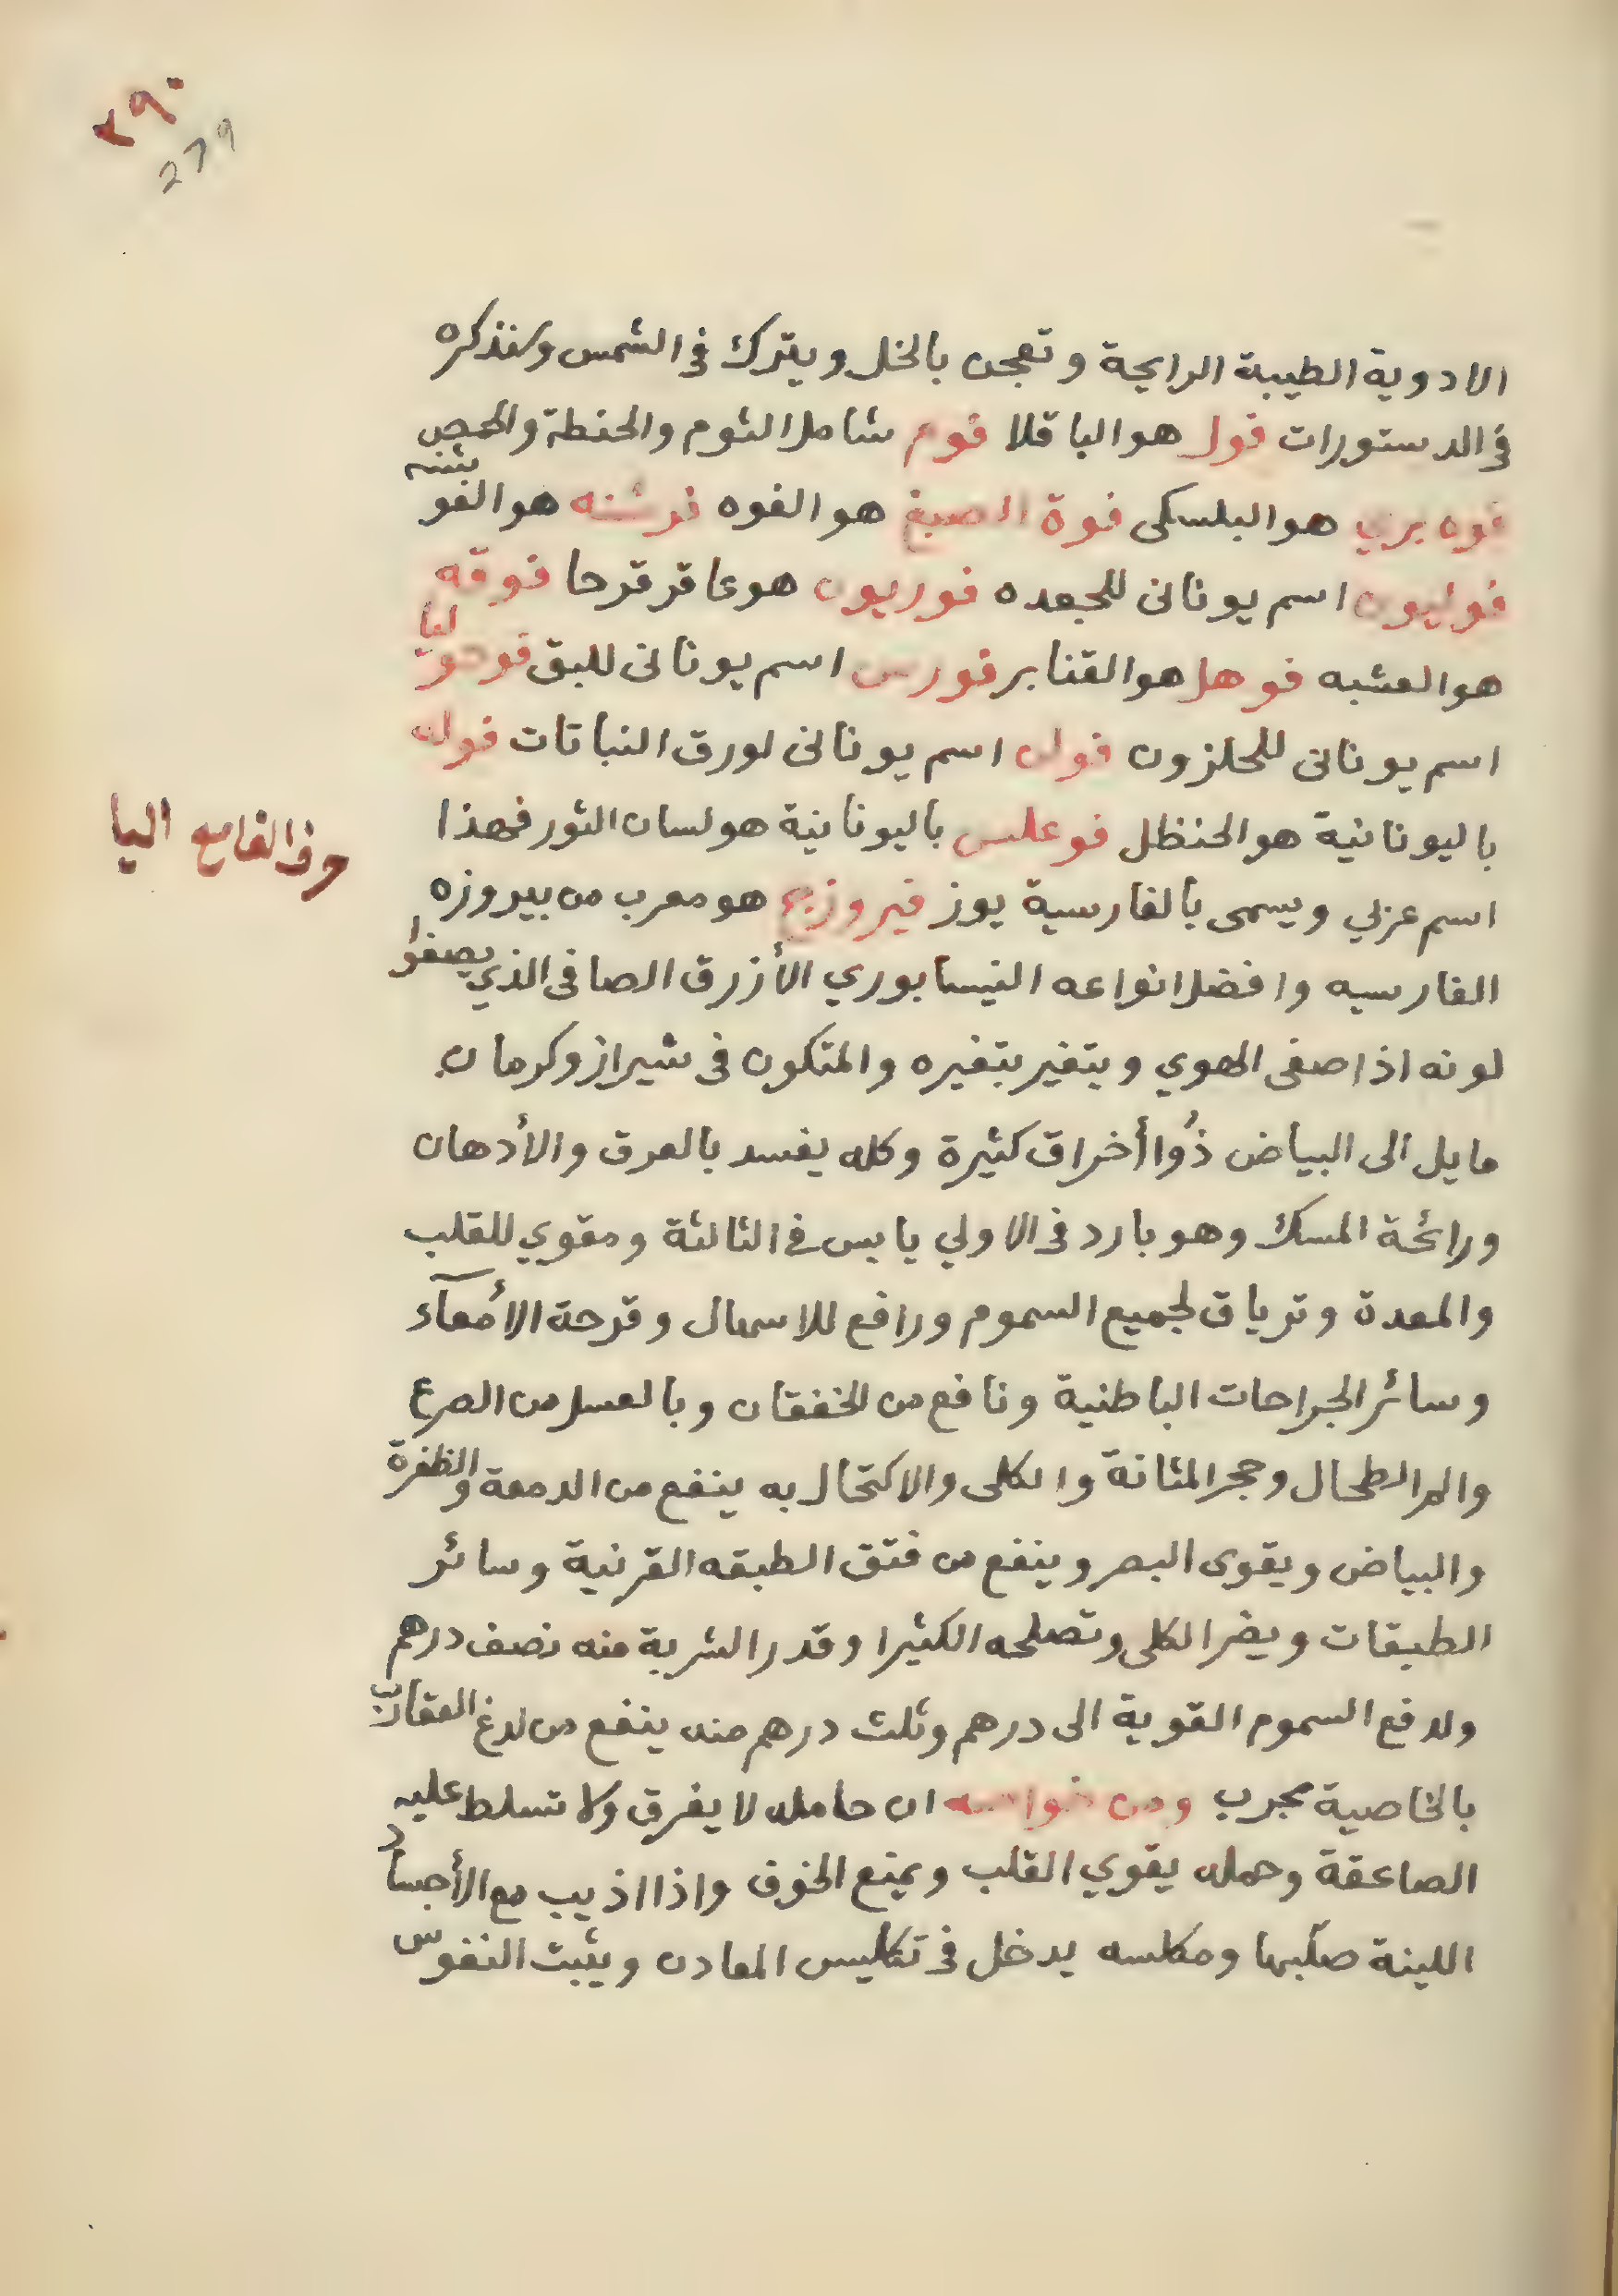 ٢٩٠
279
الادوية الطيبة الرايحة وتعجن بالخل ويترك فى الشمس وسنذكره
فى الدستورات فول هو الباقلا فوم شامل الثوم والحنطة والحمص
فوه بري هو البلسكى فوة الصبغ هو الفوه هو الفو
اسم يونانى للجعده فوريون هو عاقر قرحا فوقه
هو العشبه فوهل هو القنابر فورس اسم يونانى للبق
اسم يونانى للحلزون اسم يونانى لورق النباتات
باليونانية هو الحنظل فوعلس باليونانية هو لسان الثور فهذا
حرف الفا مع اليا
اسم عربي ويسمى بالفارسية يوز فيروزج هو معرب من بيروزه
الفارسيه وافضل انواعه النيسابوري الأزرق الصافى الذي يصفوا
لونه اذا صفى الهوي ويتغير بتغيره والمتكون فى شيراز وكرمان
مايل الى البياض ذوا أخراق كثيرة وكله يفسد بالعرق والأدهان
ورائحة المسك وهو بارد فى الاولي يابس فى الثالثة ومقوي للقلب
والمعدة وترياق لجميع السموم ورافع للاسهال وقرحة الأمعآء
وسائر الجراحات الباطنية ونافع من الخفقان وبالعسل من الصرع
والم الطحال وحجر المثانة والكلى والاكتحال به ينفع من الدمعة والظفرة
والبياض ويقوى البصر وينفع من فتق الطبقه القرنية وسائر
الطبقات ويضر الكلى وتصلحه الكثيرا وقدر الشربة منه نصف درهم
ولدفع السموم القوية الى درهم وثلث درهم منه ينفع من لدغ العقارب
بالخاصية مجرب ومن خواصه ان حامله لا يغرق ولا تسلط عليه
الصاعقة وحمله يقوي القلب ويمنع الخوف واذا اذيب مع الأجساد
اللينة صلّبها ومكلسه يدخل فى تكليس المعادن ويثبت النفوس